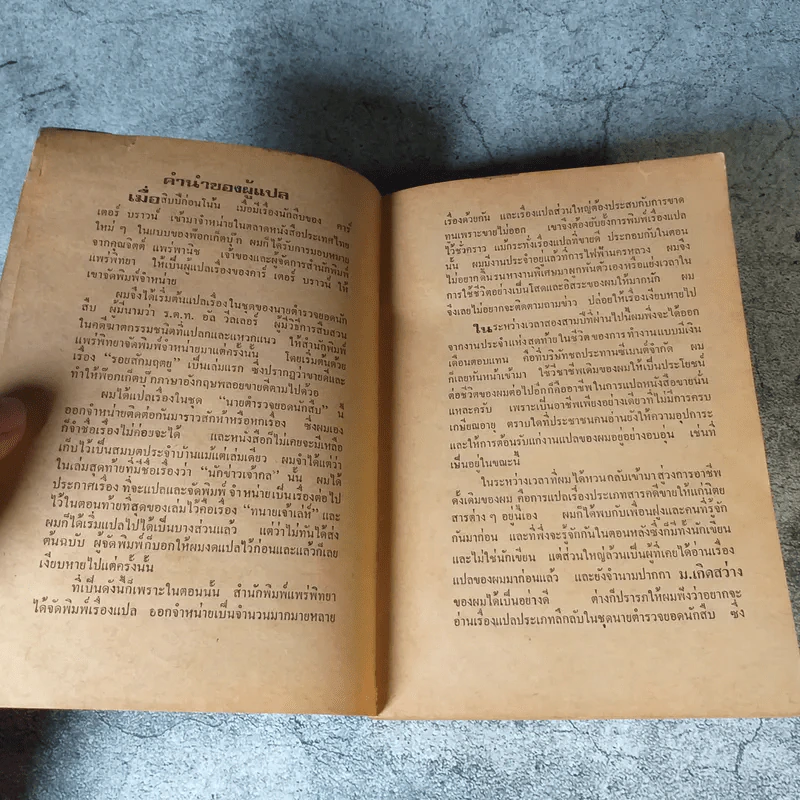 คำนำของผู้แปล
เมื่อสิบปีก่อนโน้น เมื่อมีเรื่องนักสืบของ คาร์
เตอร์ บราวน์ เข้ามาจำหน่ายในตลาดหนังสือประเทศไทย
ใหม่ ๆ ในแบบของพ๊อกเก็ตบุ๊ก ผมก็ได้รับการมอบหมาย
จากคุณจิตต์ แพร่พานิช เจ้าของและผู้จัดการสำนักพิมพ์
แพร่พิทยา ให้เป็นผู้แปลเรื่องของคาร์ เตอร์ บราวน์ ให้
เขาจัดพิมพ์จำหน่าย
ผมจึงได้เริ่มต้นแปลเรื่องในชุดของนายตำรวจยอดนัก
สืบ ผู้มีนามว่า ร.ต.ท. อัล วีลเลอร์ ผู้มีวิธีการสืบสวน
ในคดีฆาตกรรมชนิดที่แปลกและแหวกแนว ให้สำนักพิมพ์
แพร่พิทยาจัดพิมพ์จำหน่ายมาแต่ครั้งนั้น โดยเริ่มต้นด้วย
เรื่อง “รอยสักมฤตยู” เป็นเล่มแรก ซึ่งปรากฏว่าขายดีและ
ทำให้พ๊อกเก็ตบุ๊กภาษาอังกฤษพลอยขายดีตามไปด้วย
ผมได้แปลเรื่องในชุด “นายตำรวจยอดนักสืบ” นี้
ออกจำหน่ายติดต่อกันมาราวสักห้าหรือหกเรื่อง ซึ่งผมเอง
ก็จำชื่อเรื่องไม่ค่อยจะได้ และหนังสือก็ไม่เคยจะมีเหลือ
เก็บไว้เป็นสมบุดประจำบ้านแม้แต่เล่มเดียว ผมจำได้แต่ว่า
ในเล่มสุดท้ายที่มีชื่อเรื่องว่า “นักข่าวเจ้ากล” นั้น ผมได้
ประกาศเรื่อง ที่จะแปลและจัดพิมพ์ จำหน่ายเป็นเรื่องต่อไป
ไว้ในตอนท้ายที่สุดของเล่มไว้คือเรื่อง “ทนายเจ้าเล่ห์” และ
ผมก็ได้เริ่มแปลไปได้เป็นบางส่วนแล้ว แต่ว่าไม่ทันได้ส่ง
ต้นฉบับ ผู้จัดพิมพ์ก็บอกให้ผมงดแปลไว้ก่อนและแล้วก็เลย
เงียบหายไปแต่ครั้งนั้น
ที่เป็นดังนี้ก็เพราะในตอนนั้น สำนักพิมพ์แพร่พิทยา
ได้จัดพิมพ์เรื่องแปล ออกจำหน่ายเป็นจำนวนมากมายหลาย
เรื่องด้วยกัน และเรื่องแปลส่วนใหญ่ต้องประสบกับการขาด
ทุนเพราะขายไม่ออก เขาจึงต้องยับยั้งการพิมพ์เรื่องแปล
ไว้ชั่วคราว แม้กระทั่งเรื่องแปลที่ขายดี ประกอบกับในตอน
นั้น ผมมีงานประจำอยู่แล้วที่การไฟฟ้านครหลวง ผมจึง
ไม่อยาก ดิ้นรนหางานพิเศษมาผูกพันตัวเองหรือแย่งเวลาใน
การใช้ชีวิตอย่างเป็นโสดและอิสระของผมให้มากนัก ผม
จึงเลยไม่อยากจะติดตามถามข่าว ปล่อยให้เรื่องเงียบหายไป
ในระหว่างเวลาสองสามปีที่ผ่านไปนี้ผมพึ่งจะได้ออก
จากงานประจำแห่งสุดท้ายในชีวิตของการทำงานแบบมีเงิน
เดือนตอบแทน คือที่บริษัทชลประทานซีเมนต์จำกัด ผม
ก็เลยหันหน้าเข้ามา ใช้วิชาชีพเดิมของผมให้เป็นประโยชน์
ต่อชีวิตของผมต่อไปอีกก็คืออาชีพในการแปลหนังสือขายนั้น
แหละครับ เพราะเป็นอาชีพเพียงอย่างเดียวที่ไม่มีการครบ
เกษียณอายุ ตราบใดที่ประชาชนคนอ่านยังให้ความอุปการะ
และให้การต้อนรับแก่งานแปลของผมอยู่อย่างอบอุ่น เช่นที่
เป็นอยู่ในขณะนี้
ในระหว่างเวลาที่ผมได้หวนกลับเข้ามา สู่วงการอาชีพ
ดั้งเดิมของผม คือการแปลเรื่องประเภทสารคดีขายให้แก่นิตย
สารต่าง ๆ อยู่นี้เอง ผมก็ได้พบกับเพื่อนฝูงและคนที่รู้จัก
กันมาก่อน และที่พึ่งจะรู้จักกันในตอนหลังซึ่งก็มีทั้งนักเขียน
และไม่ใช่นักเขียน แต่ส่วนใหญ่ล้วนเป็นผู้ที่เคยได้อ่านเรื่อง
แปลของผมมาก่อนแล้ว และยังจำนามปากกา ม.เกิดสว่าง
ของผมได้เป็นอย่างดี ต่างก็ปรารภให้ผมฟังว่าอยากจะ
อ่านเรื่องแปลประเภทลึกลับในชุดนายตำรวจยอดนักสืบ ซึ่ง